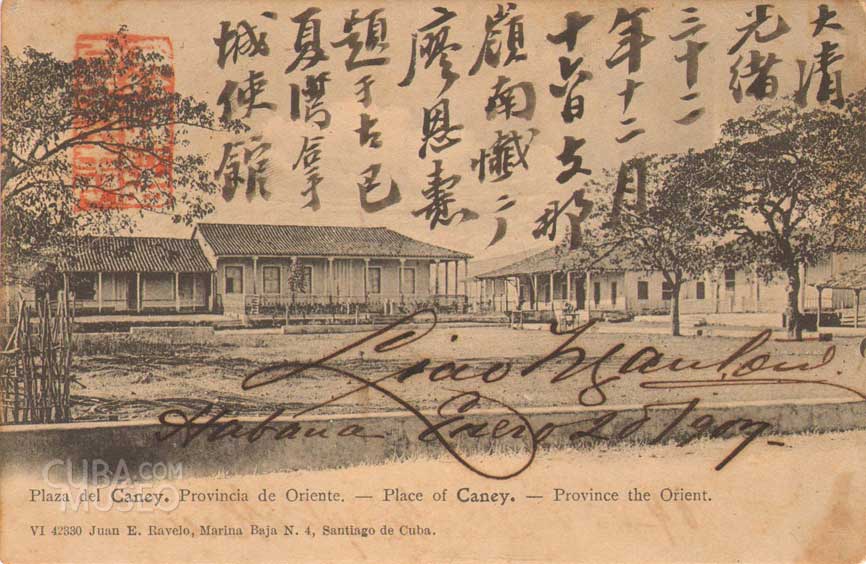 大清
光緒
三十二
年十二月
十六日支那
嶺南懺广
廖恩燾
題于古巴
夏灣拿
城使館
Liao Ngantow.
Habana Enero 28/907
CUBA.COM
MUSEO
Plaza del Caney. Provincia de Oriente. — Place of Caney. — Province the Orient.
VI 42330 Juan E. Ravelo, Marina Baja N. 4, Santiago de Cuba.